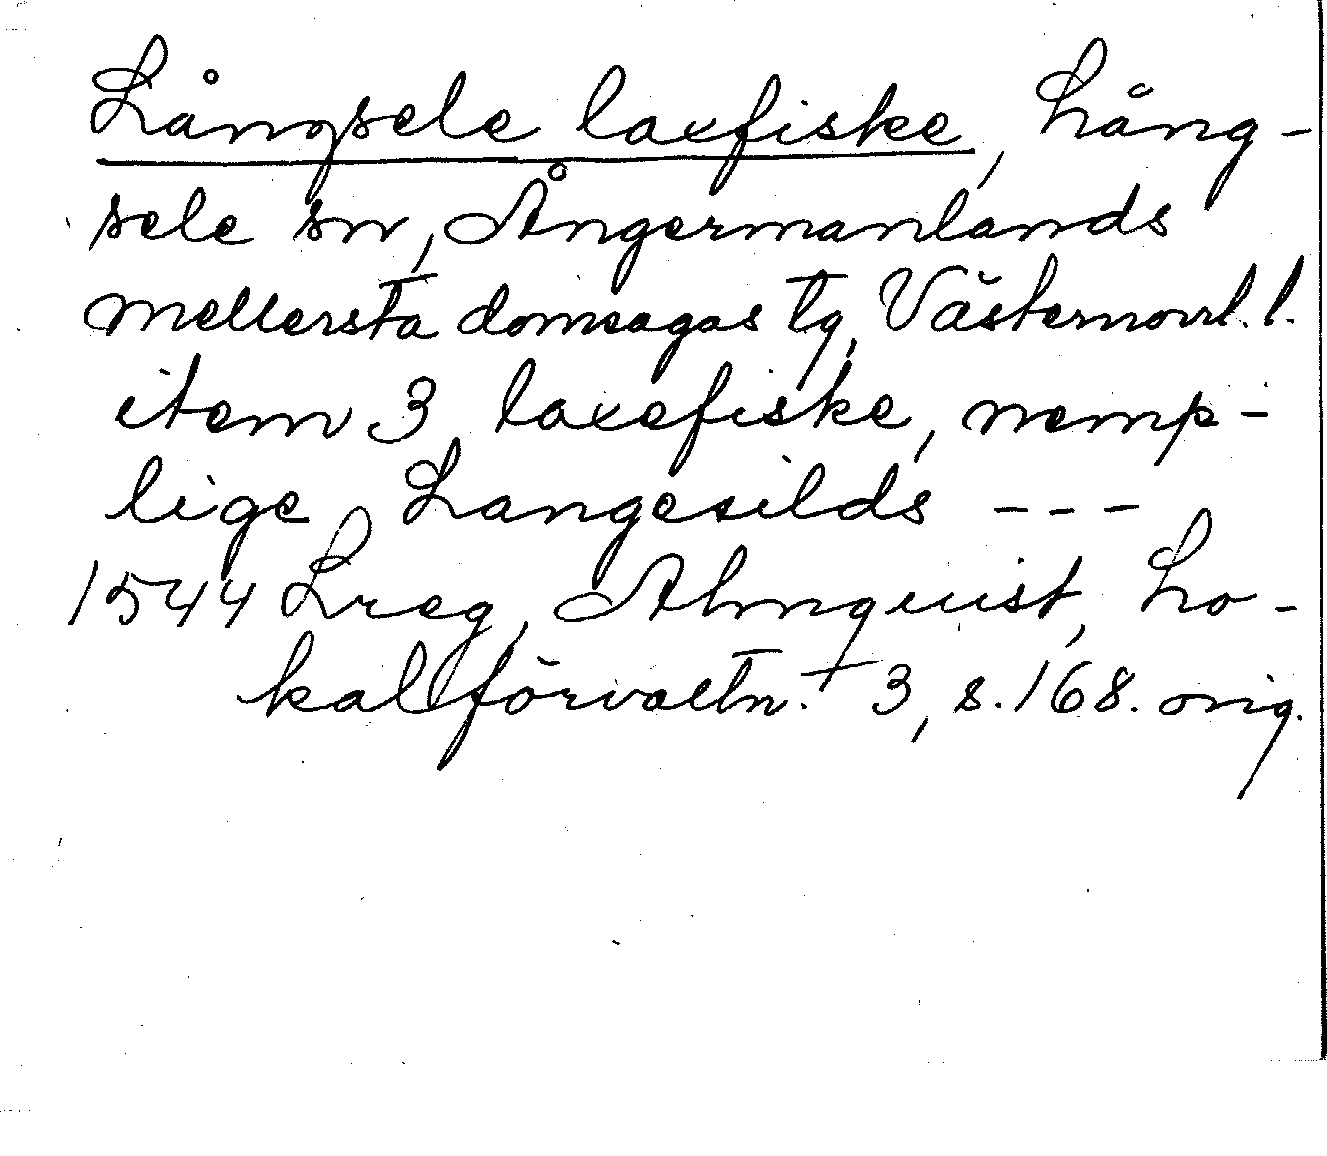 Långsele laxfiske, Lång-
sele sn, Ångermanlands
mellersta domsagas tg, Västernorrl. l.
item 3 laxefiske, nemp-
lige Langesilds ---
1544 Lreg, Almquist, Lo-
kalförvaltn. 3, s. 168. orig.